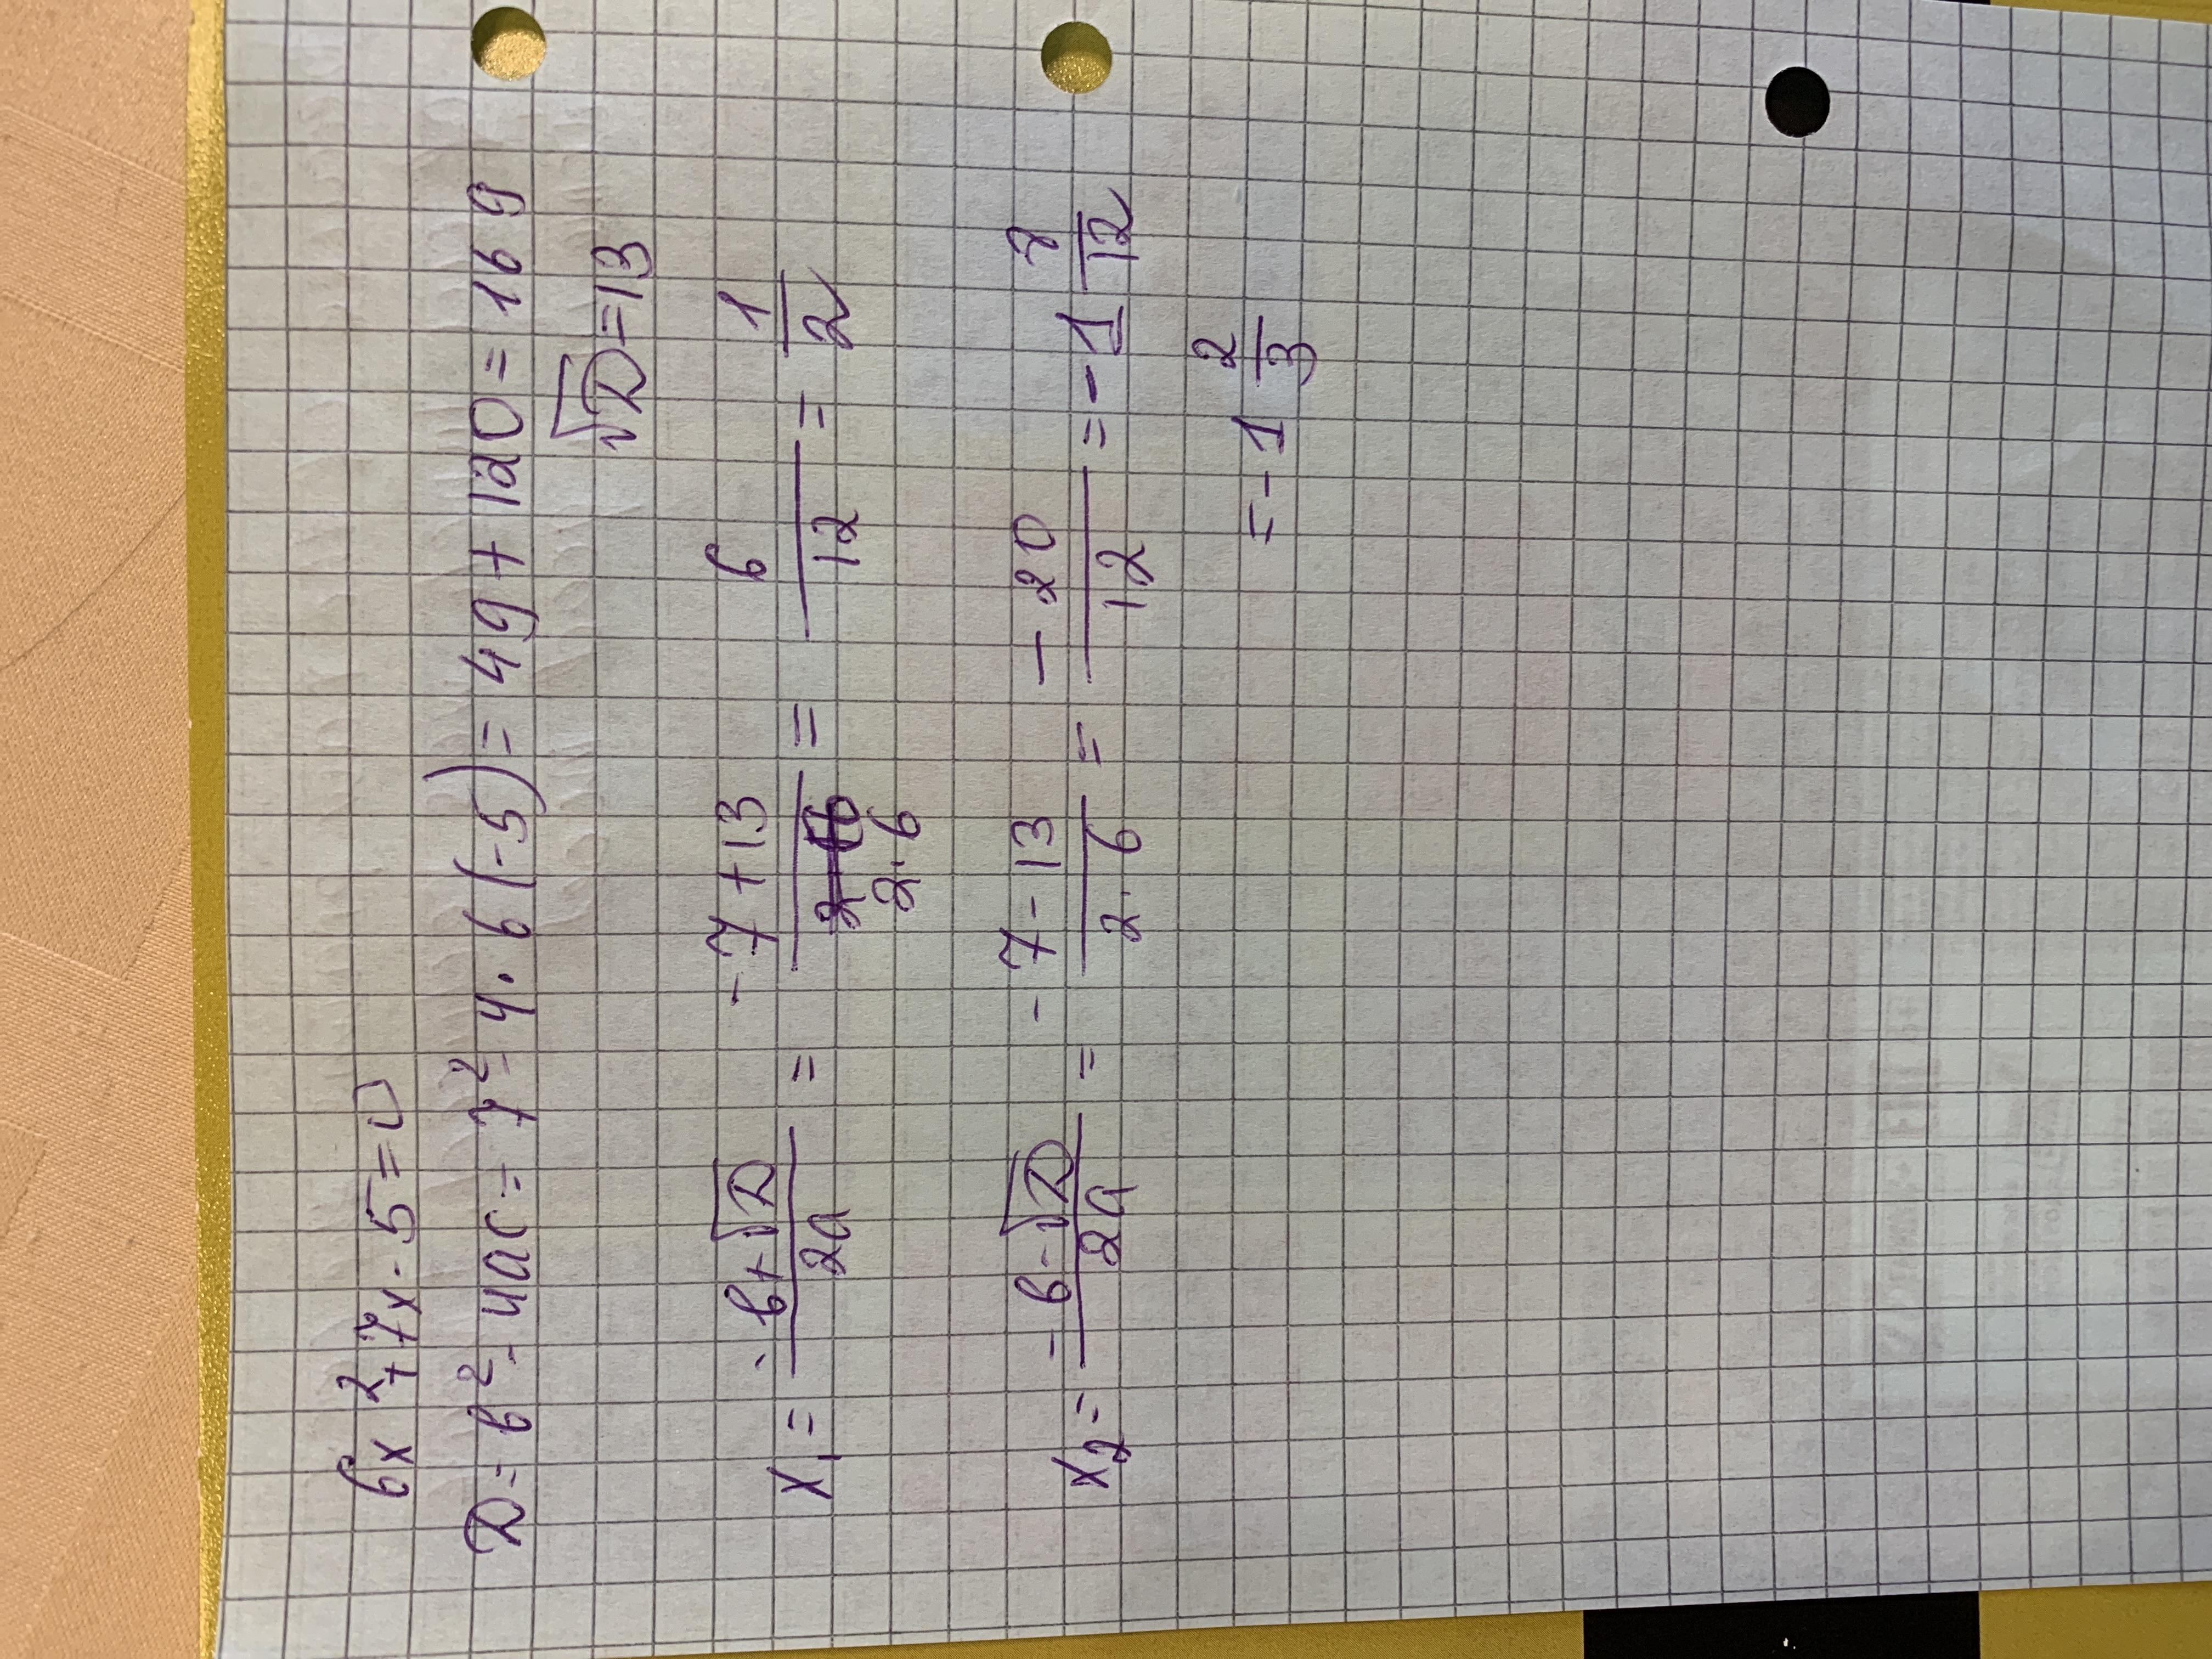 6x² + 7x - 5 = 0
D = b² - 4ac = 7² - 4 · 6 (-5) = 49 + 120 = 169
√D = 13
x₁ = (-b + √D)/(2a) = (-7 + 13)/(2 · 6) = 6/12 = 1/2
x₂ = (-b - √D)/(2a) = (-7 - 13)/(2 · 6) = -20/12 = -1 8/12
= -1 2/3